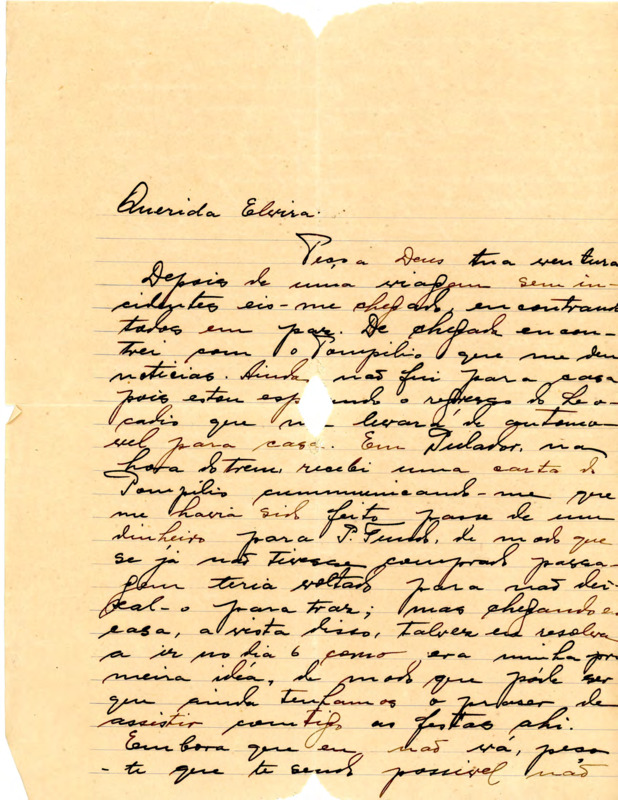 Querida Elvira.
Peço a Deus tua ventura
Depois de uma viagem sem in-
cidentes eis-me chegado, encontrando
todos em paz. De chegada encon-
trei com o Pompilio que me deu
noticias. Ainda não fui para casa
pois estou esp ndo o regresso do Leo-
cadio que me levará de automo-
vel para casa. Em Pulador, na
hora do trem, recebi uma carta do
Pompilio cummunicando-me que
me havia sido feito passe de um
dinheiro para P. Fundo, de modo que
se já não tivesse comprado passa-
gem teria voltado para não dei-
xal-o para traz; mas chegando em
casa, a vista disso, talvez eu resolva
a ir no dia 6 como era minha pri
meira idéa, de modo que póde ser
que ainda tenhamos o praser de
assistir comtigo as festas ahi.
Embora que eu não vá, peço
-te que te sendo possivel não